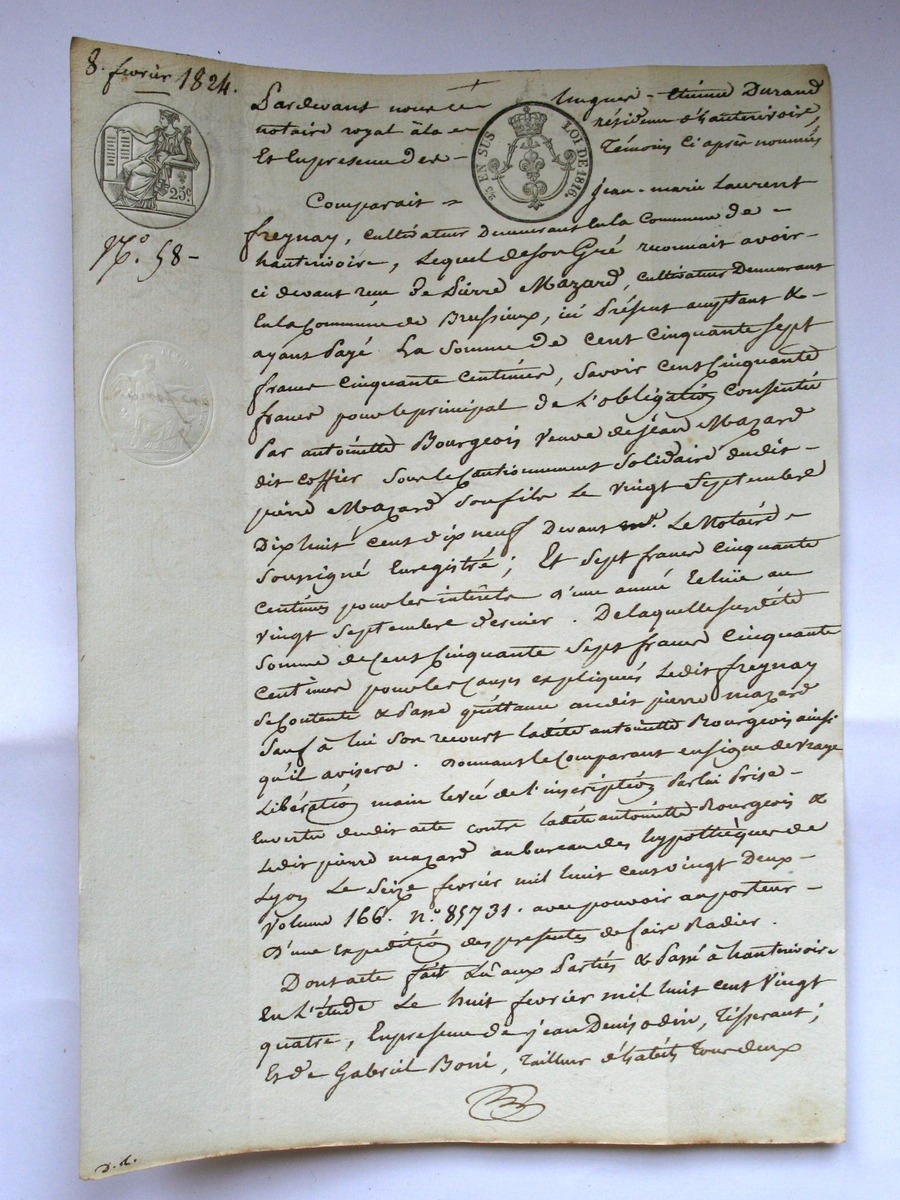 8. fevrier 1824.
25 EN SUS LOI DE 1816.
25c.
N.o 58-
Pardevant nous hugues - étienne Durand
notaire royal à la résidence d'hauterivoire,
Et En presence des Témoins Ci après nommés
Comparait = Jean-marie Laurent
freynay, Cultivateur Demeurant En la Commune de -
hauterivoire, Lequel de Son Gré reconnait avoir -
ci devant reçu de Pierre Mazard, cultivateur Demeurant
En la Commune de Brussieux, ici Présent acceptant &
ayant Payé La Somme De Cent Cinquante Sept
francs Cinquante Centimes, Savoir Cent Cinquante
francs pour le principal de L'obligation Consentie
Par antoinette Bourgeois Veuve de Jean Mazard
dit coffier Sous le Cautionnement Solidaire dudit -
pierre Mazard Son fils Le Vingt Septembre
Dix huit cent dix neuf Devant Le Notaire -
Soussigné Enregistré; Et Sept francs Cinquante
Centimes pour les intérêts d'une année Echüe au
vingt Septembre dernier. De laquelle Susdite
Somme de Cent Cinquante Sept francs Cinquante
Centimes pour les Causes expliquées Ledit freynay
Se Contente & Passe quittance audit pierre mazard
Sauf à lui Son recours ladite antoinette Bourgeois ainsi
qu'il avisera. Donnant le Comparant en Signe de
Libération main levée de l'inscription Par lui Prise -
En vertu dudit acte contre ladite antoinette Bourgeois &
Ledit pierre mazard au bureau des hypothèques de
Lyon Le Seize fevrier mil huit cent vingt Deux -
Volume 166. n.o 85731. avec pouvoir au porteur -
D'une expédition des presentes de faire Radier.
Dont acte fait Lû aux Parties & Passé à hauterivoire
En L'étude Le huit fevrier mil huit cent Vingt
quatre, En presence de jean Denis odin, Tisserant;
Et de Gabriel Boni, Tailleur d'habits Tous deux
D. d.